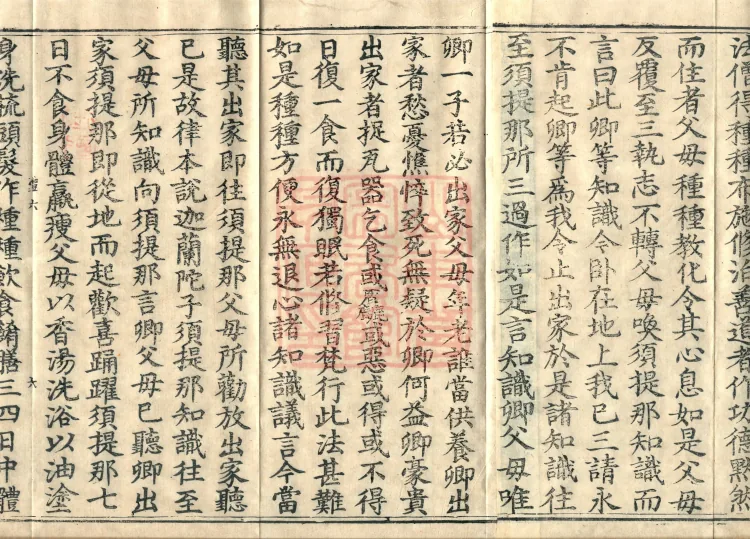 法僧得種種布施修治善道者作功德默然
而住者父母種種教化令其心息如是父母
反覆至三執志不轉父母喚須提那知識而
言曰此卿等知識今卧在地上我已三請永
不肯起卿等爲我令止出家於是諸知識往
至須提那所三過作如是言知識卿父母唯
卿一子若必出家父母年老誰當供養卿出
家者愁憂憔悴致死無疑於卿何益卿豪貴
出家者捉瓦器乞食或麤或惡或得或不得
日復一食而復獨眠若修習梵行此法甚難
如是種種方便永無退心諸知識議言今當
聽其出家即往須提那父母所勸放出家聽
已是故律本說迦蘭陀子須提那知識往至
父母所知識向須提那言卿父母已聽卿出
家須提那即從地而起歡喜踊躍須提那七
日不食身體羸瘦父母以香湯洗浴以油塗
身洗梳頭髮作種種飲食餚膳三四日中體